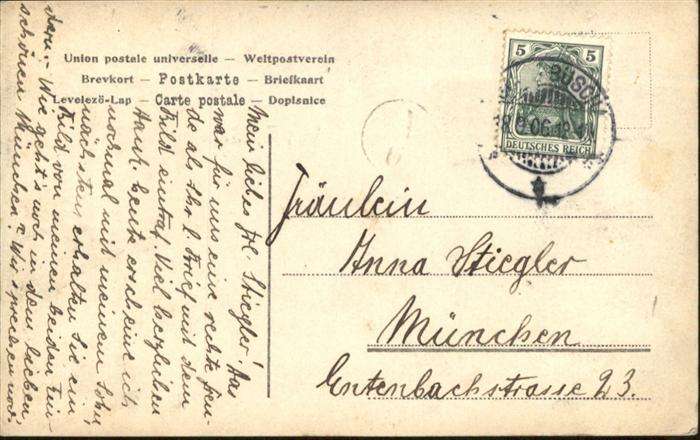 Union postale universelle — Weltpostverein
Brevkort — Postkarte — Briefkaart
Levelező-Lap — Carte postale — Dopisnice
5 5
DEUTSCHES REICH
Fräulein
Anna Stiegler
München
Entenbachstrasse 23.
Mein liebes Frl. Stiegler! Das
war für uns eine rechte Freu-
de als Ihr l. Brief mit dem
Bild eintraf. Viel herzlichen
Dank. heute erscheine ich
nochmal mit meinem Sohn,
nächstens erhalten Sie ein
Bild von meinen beiden
Wie geht's noch in dem lieben
schönen München? Wir sprechen noch